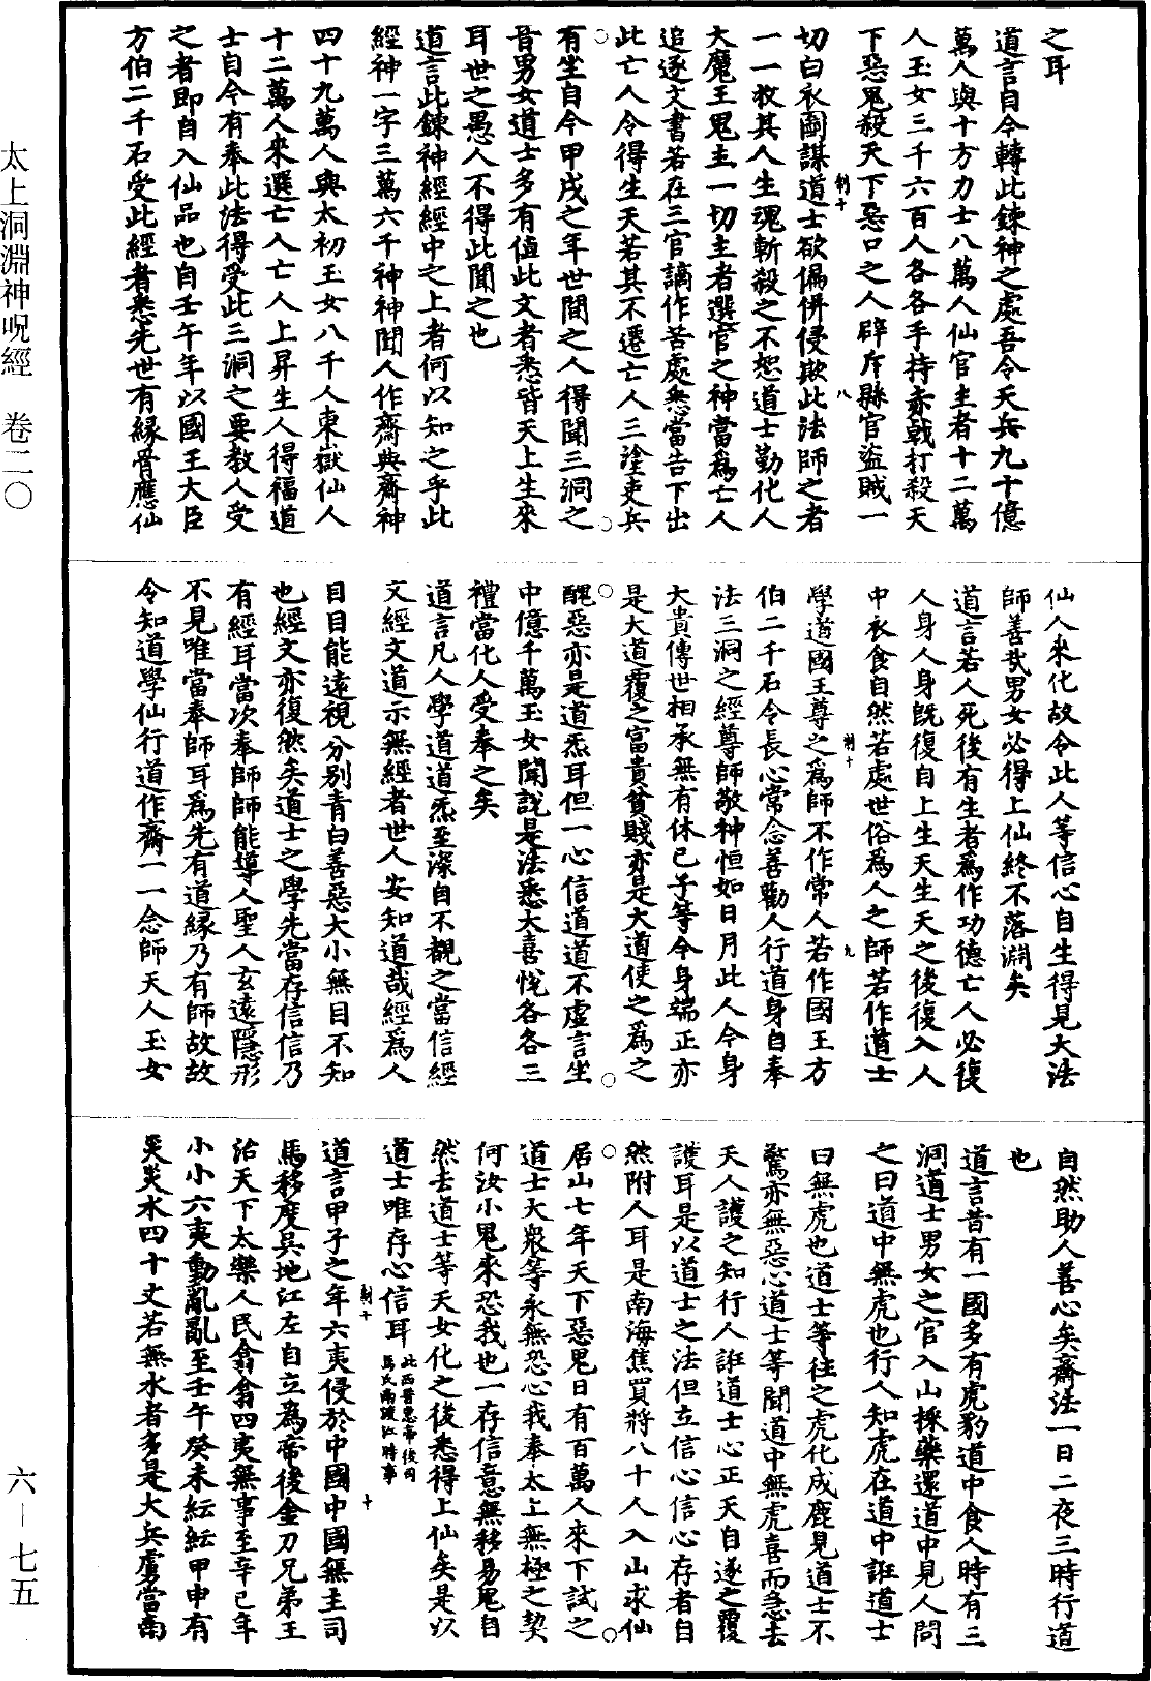 之耳
道言自今轉此鍊神之處吾令天兵九十億
萬人與十方力士八萬人仙官主者十二萬
人玉女三千六百人各各手持赤戟打殺天
下惡鬼殺天下惡口之人辟斥縣官盜賊一
切白衣圖謀道士欲偏併侵欺此法師之者
一一收其人生魂斬殺之不恕道士勤化人
大魔王鬼主一切主者選官之神當為亡人
追逐文書若在三官謫作苦處悉當告下出
此亡人令得生天若其不遷亡人三塗吏兵
有坐自今甲戌之年世間之人得聞三洞之
音男女道士多有值此文者悉皆天上生來
耳世之愚人不得此聞之也
道言此鍊神經經中之上者何以知之乎此
經神一字三萬六千神神聞人作齋典齋神
四十九萬人與太初玉女八千人東嶽仙人
十二萬人來選亡人亡人上昇生人得福道
士自今有奉此法得受此三洞之要教人受
之者即自入仙品也自壬午年以國王大臣
方伯二千石受此經者悉先世有緣骨應仙
仙人來化故令此人等信心自生得見大法
師善哉男女必得上仙終不落淵矣
道言若人死後有生者為作功德亡人必復
人身人身既復自上生天生天之後復入人
中衣食自然若處世俗為人之師若作道士
學道國王尊之為師不作常人若作國王方
伯二千石令長心常念善勸人行道身自奉
法三洞之經尊師敬神恒如日月此人今身
大貴傳世相承無有休已子等今身端正亦
是大道覆之富貴貧賤亦是大道使之為之
醜惡亦是道炁耳但一心信道道不虛言坐
中億千萬玉女聞說是法悉大喜悅各各三
禮當化人受奉之矣
道言凡人學道道炁至深自不覩之當信經
文經文道示無經者世人安知道哉經為人
目目能遠視分別青白善惡大小無目不知
也經文亦復然矣道士之學先當存信信乃
有經耳當次奉師師能導人聖人玄遠隱形
不見唯當奉師耳為先有道緣乃有師故故
令知道學仙行道作齋一一念師天人玉女
自然助人善心矣齋法一日二夜三時行道
也
道言昔有一國多有虎豹道中食人時有三
洞道士男女之官入山採藥還道中見人問
之曰道中無虎也行人知虎在道中誑道士
曰無虎也道士等往之虎化成鹿見道士不
驚亦無惡心道士等聞道中無虎喜而急去
天人護之知行人誑道士心正天自遂之覆
護耳是以道士之法但立信心信心存者自
然附人耳是南海焦買將八十人入山求仙
居山七年天下惡鬼日有百萬人來下試之
道士大眾等永無恐心我奉太上無極之契
何汝小鬼來恐我也一存信意無移易鬼自
然去道士等天女化之後悉得上仙矣是以
道士唯存心信耳此西晉惠帝後司馬氏南渡江時事
道言甲子之年六夷侵於中國中國無主司
馬移度吳地江左自立為帝後金刀兄弟王
治天下太樂人民翕翕四夷無事至辛巳年
小小六夷動亂亂至壬午癸未紜紜甲申有
災災水四十丈若無水者多是大兵虜當南
太上洞淵神呪經 卷二〇
六—七五